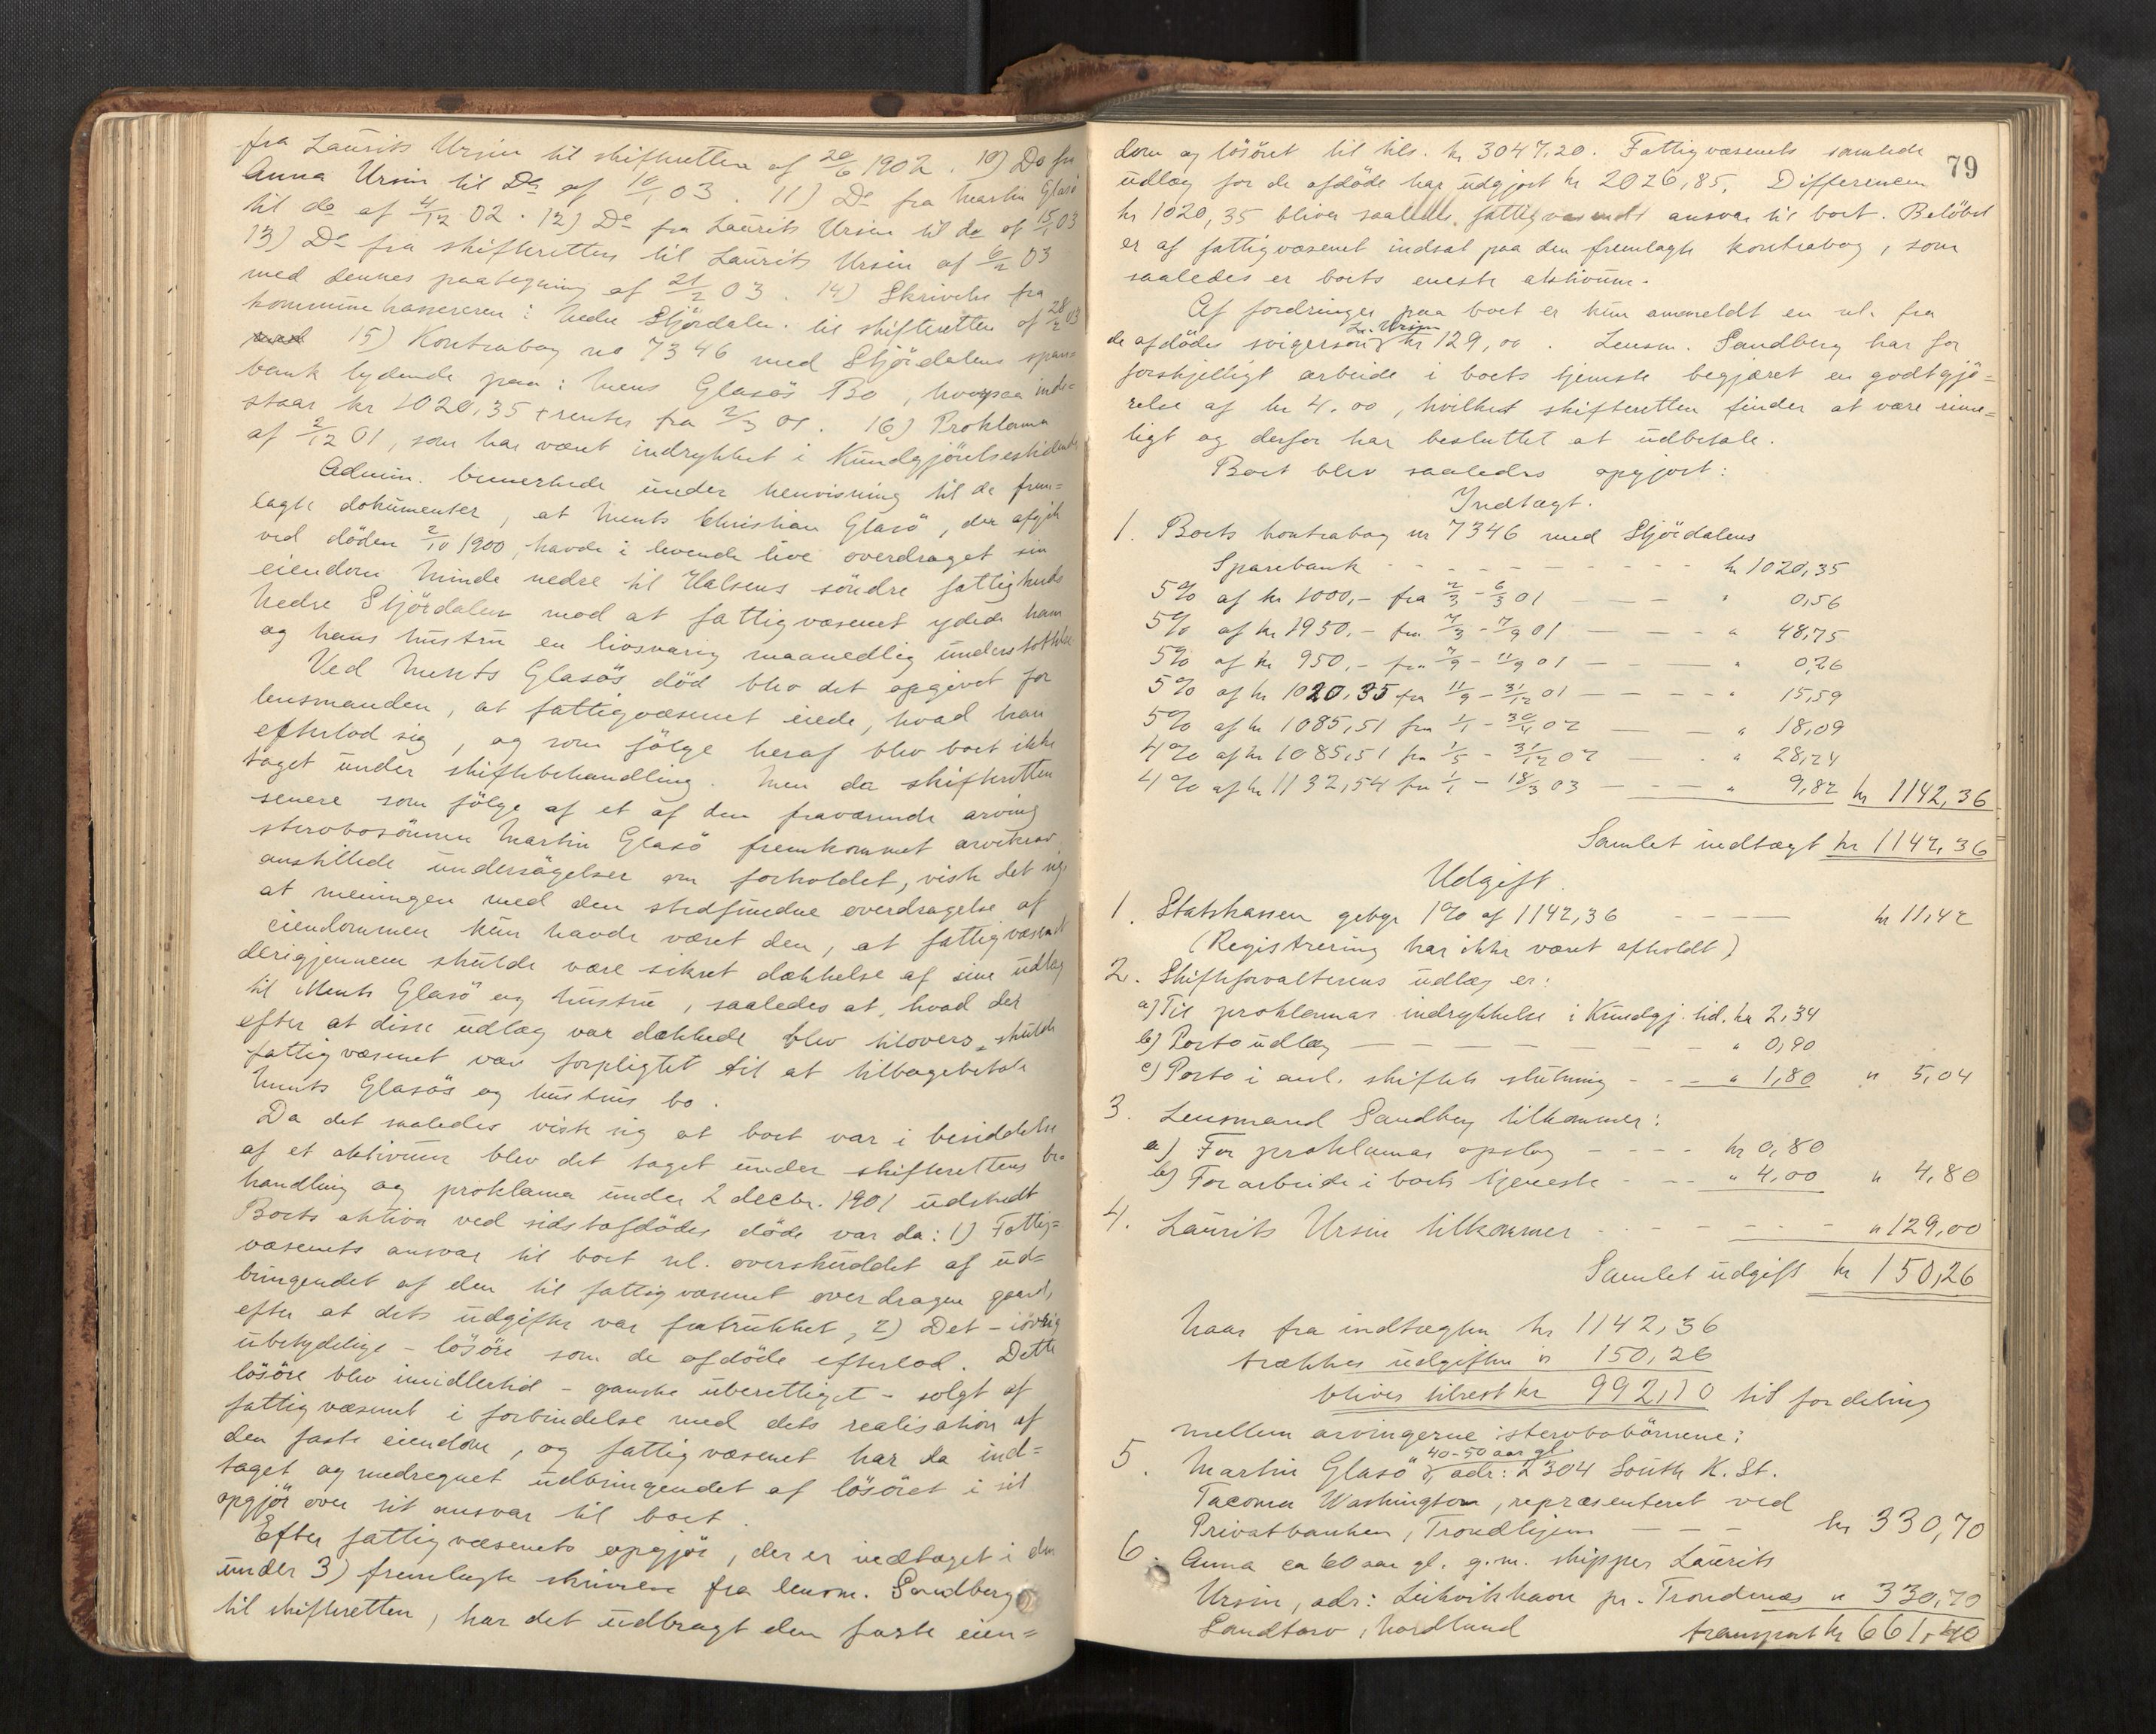 fra Laurits Ursin til skifteretten af 20/6 1902. 10) Do fra
Anna Ursin til Do af 10/1 03. 11) Do fra Martin Glasö
til do af 4/12 02. 12) Do fra Laurits Ursin til do af 15/1 03
13) Do fra skifteretten til Laurits Ursin af 6/2 03
med dennes paategning af 21/2 03. 14) Skrivelse fra
kommunekassereren i Nedre Stjördalen til skifteretten af 28/2 03
15) Kontrabog no 7346 med Stjördalens spare=
bank lydende paa: Ments Glasös Bo, hvorpaa inde=
staar kr 1020,35 + renter fra 2/3 01. 16) Proklama
af 2/12 01, som har været indrykket i Kundgjörelsestidende
Admin. bemerkede under henvisning til de frem=
lagte dokumenter, at Ments Christian Glasö, der afgik
ved döden 2/10 1900, havde i levende live overdraget sin
eiendom Minde nedre til Halsens söndre fattigkreds
Nedre Stjördalen mod at fattigvæsenet ydede ham
og hans hustru en livsvarig maanedlig understöttelse
Ved Ments Glasös död blev det opgivet for
lensmanden, at fattigvæsenet eiede, hvad han
efterlod sig, og som fölge heraf blev boet ikke
taget under skiftebehandling. Men da skifteretten
senere som fölge af et af den fraværende arving
sterbosönnen Martin Glasö fremkommet arvekrav
anstillede undersögelser om forholdet, viste det sig
at meningen med den stedfundne overdragelse af
eiendommen kun havde været den, at fattigvæsenet
derigjennem skulde være sikret dækkelse af sine udlæg
til Ments Glasö og hustru, saaledes at, hvad der
efter at disse udlæg var dækkede blev tilovers, skulde
fattigvæsenet være forpligtet til at tilbagebetale
Ments Glasös og hustrus bo.
Da det saaledes viste sig at boet var i besiddelse
af et aktivum blev det taget under skifterettens be=
handling og proklama under 2 decbr. 1901 udstedt
Boets aktiva ved sidstafdödes död var da: 1) Fattig=
væsenets ansvar til boet nl. overskuddet af ud=
bringendet af den til fattigvæsenet overdragne gaard,
efter at dets udgifter var fratrukket, 2) Det - iövrig
ubetydelige - lösöre som de afdöde efterlod. Dette
lösöre blev imidlertid - ganske uberettiget - solgt af
fattigvæsenet i forbindelse med dets realisation af
den faste eiendom, og fattigvæsenet har da ind=
taget og medregnet udbringendet af lösöret i sit
opgjör over sit ansvar til boet.
Efter fattigvæsenets opgjör, der er indtaget i den
under 3) fremlagte skrivelse fra lensm. Sandberg
til skifteretten, har det udbragt den faste eien=
79
dom og lösöret til tils. kr 3047,20. Fattigvæsenets samlede
udlæg for de afdöde har udgjort kr 2026,85. Differencen
kr 1020,35 bliver saaledes fattigvæsenets ansvar til boet. Belöbet
er af fattigvæsenet indsat paa den fremlagte kontrabog, som
saaledes er boets eneste aktivum.
Af fordringer paa boet er kun anmeldt en nl. fra
L. Ursin
de afdödes svigersön kr 129,00. Lensm. Sandberg har for
forskjelligt arbeide i boets tjeneste begjæret en godtgjö=
relse af kr 4.00, hvilket skifteretten finder at være rime=
ligt og derfor har besluttet at udbetale.
Boet blev saaledes opgjort:
Indtægt.
1. Boets kontrabog nr 7346 med Stjördalens
Sparebank - - - - kr 1020,35
5% af kr 1000,- fra 2/3 - 6/3 01 — — " 0,56
5% af kr 1950,- fra 7/3 - 7/9 01 — — " 48,75
5% af kr 950,- fra 7/9 - 11/9 01 — — " 0,26
5% af kr 1020,35 fra 11/9 - 31/12 01 — — " 15,59
5% af kr 1085,51 fra 1/1 - 30/4 02 — — " 18,09
4% af kr 1085,51 fra 1/5 - 31/12 02 — — " 28,24
4% af kr 1132,54 fra 1/1 - 18/3 03 — — " 9,82 kr 1142,36
Samlet indtægt kr 1142,36
Udgift.
1. Statskassen gebyr 1% af 1142,36 - — — kr 11,42
(Registrering har ikke været afholdt)
2. Skifteforvalterens udlæg er:
a) Til proklamas indrykkelse i Kundgj. tid. kr 2,34
b) Porto udlæg — — — " 0,90
c) Porto i anl. skiftets slutning - - " 1,80 " 5,04
3. Lensmand Sandberg tilkommer:
a) For proklamas opslag - - - kr 0,80
b) For arbeide i boets tjeneste - - " 4,00 " 4,80
4. Laurits Ursin tilkommer - - - " 129,00
Samlet udgift kr 150,26
Naar fra indtægten kr 1142,36
trækkes udgiften " 150,26
blives tilrest kr 992,10 til fordeling
mellem arvingerne sterbobörnene:
40-50 aar gl.
5. Martin Glasö, adr: 2304 South K. St.
Tacoma Washington, repræsenteret ved
Privatbanken, Trondhjem — — — kr 330,70
6. Anna ca 60 aar gl. g.m. skipper Laurits
Ursin, adr: Leikvikhavn pr. Trondenæs " 330,70
Sandtorv, Nordland transport kr 661,40